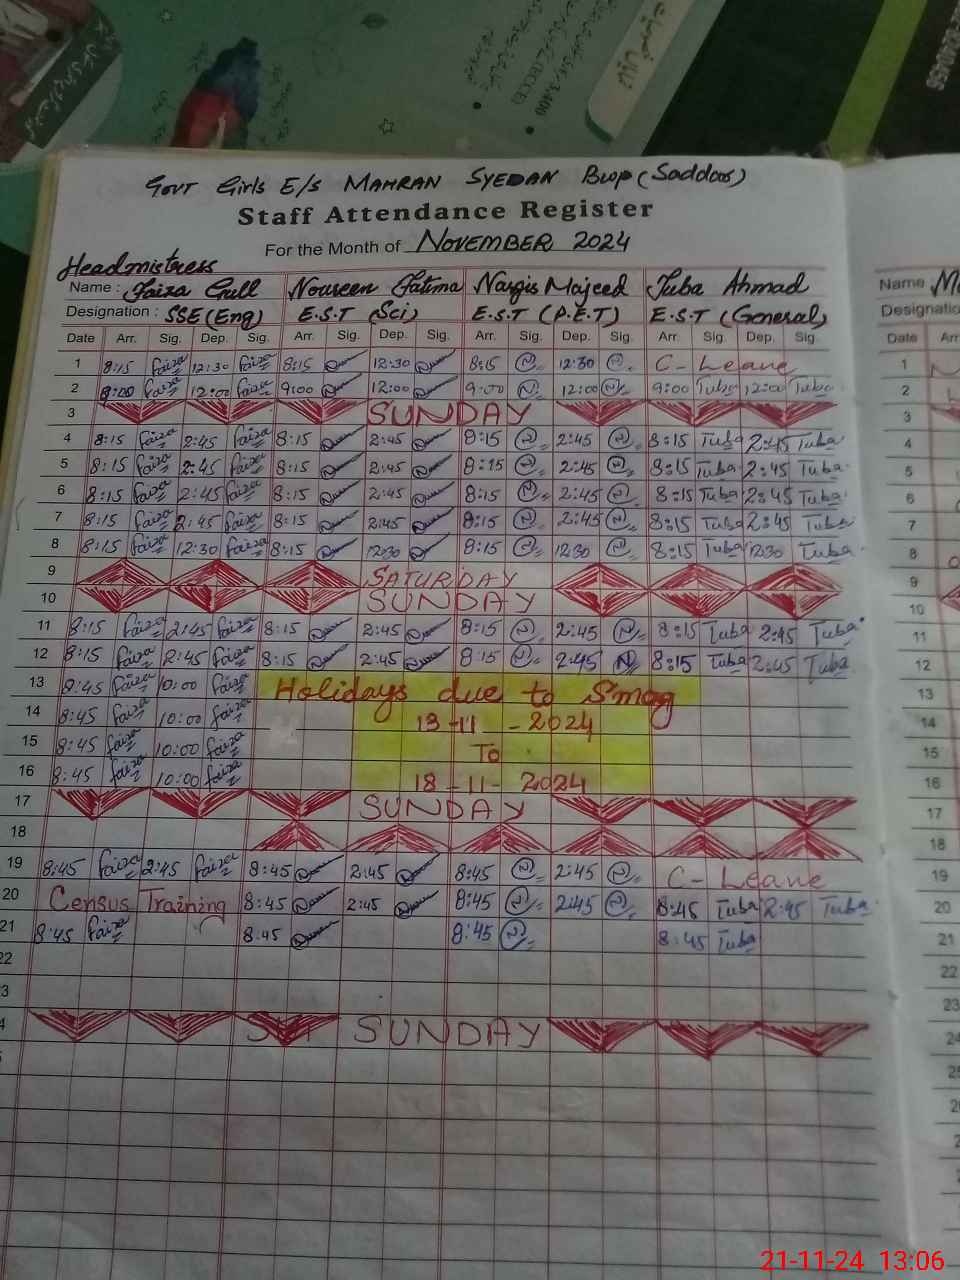 Govt Girls E/s MAHRAN SYEDAN Bwp (Saddar)
Staff Attendance Register
For the Month of NOVEMBER 2024
Headmistress
Name : Faiza Gull Noureen Fatima Nargis Majeed Tuba Ahmad
Designation : SSE (Eng) E.S.T (Sci) E.S.T (P.E.T) E.S.T (General)
Date Arr. Sig. Dep. Sig. Arr. Sig. Dep. Sig. Arr. Sig. Dep. Sig. Arr. Sig. Dep. Sig.
1 8:15 Faiza 12:30 Faiza 8:15 12:30 8:15 N 12:30 N C- Leave
2 9:00 Faiza 12:00 Faiza 9:00 12:00 9:00 N 12:00 N 9:00 Tuba 12:00 Tuba
3 SUNDAY
4 8:15 Faiza 2:45 Faiza 8:15 2:45 8:15 N 2:45 N 8:15 Tuba 2:45 Tuba
5 8:15 Faiza 2:45 Faiza 8:15 2:45 8:15 N 2:45 N 8:15 Tuba 2:45 Tuba
6 8:15 Faiza 2:45 Faiza 8:15 2:45 8:15 N 2:45 N 8:15 Tuba 2:45 Tuba
7 8:15 Faiza 2:45 Faiza 8:15 2:45 8:15 N 2:45 N 8:15 Tuba 2:45 Tuba
8 8:15 Faiza 12:30 Faiza 8:15 12:30 8:15 N 12:30 N 8:15 Tuba 12:30 Tuba
9 SATURDAY
10 SUNDAY
11 8:15 Faiza 2:45 Faiza 8:15 2:45 8:15 N 2:45 N 8:15 Tuba 2:45 Tuba
12 8:15 Faiza 2:45 Faiza 8:15 2:45 8:15 N 2:45 N 8:15 Tuba 2:45 Tuba
13 8:45 Faiza 10:00 Faiza Holidays due to Smog
14 8:45 Faiza 10:00 Faiza 13-11-2024
15 8:45 Faiza 10:00 Faiza To
16 8:45 Faiza 10:00 Faiza 18-11-2024
17 SUNDAY
18
19 8:45 Faiza 2:45 Faiza 8:45 2:45 8:45 N 2:45 N C- Leave
20 Census Training 8:45 2:45 8:45 N 2:45 N 8:45 Tuba 2:45 Tuba
21 8:45 Faiza 8:45 8:45 N 8:45 Tuba
22
3
4 SUNDAY
Name
Designation
Date Arr
1
2
3
4
5
6
7
8
9
10
11
12
13
14
15
16
17
18
19
20
21
22
23
24
21-11-24 13:06